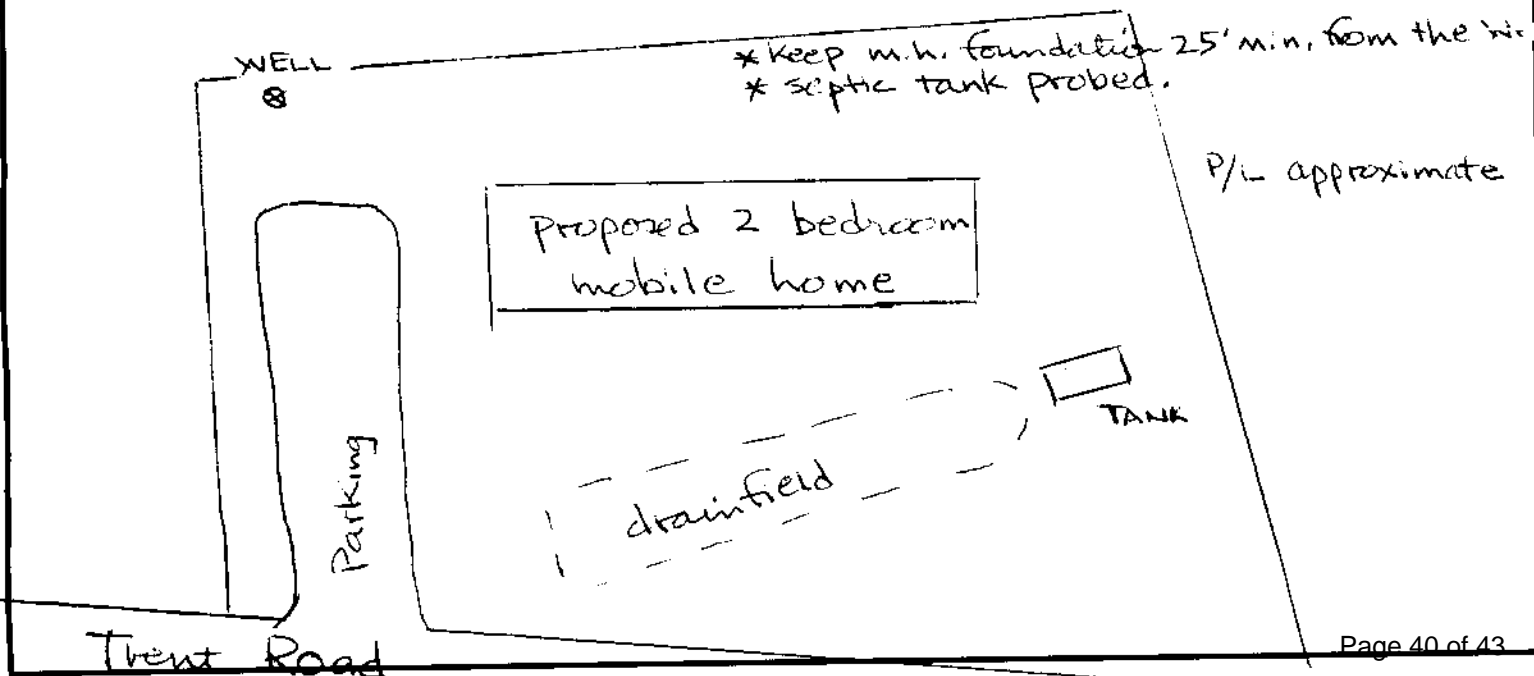 WELL
* keep m.h. foundation 25' min. from the
* septic tank probed.
P/L approximate
proposed 2 bedroom
mobile home
TANK
drainfield
Parking
Trent Road
Page 40 of 43